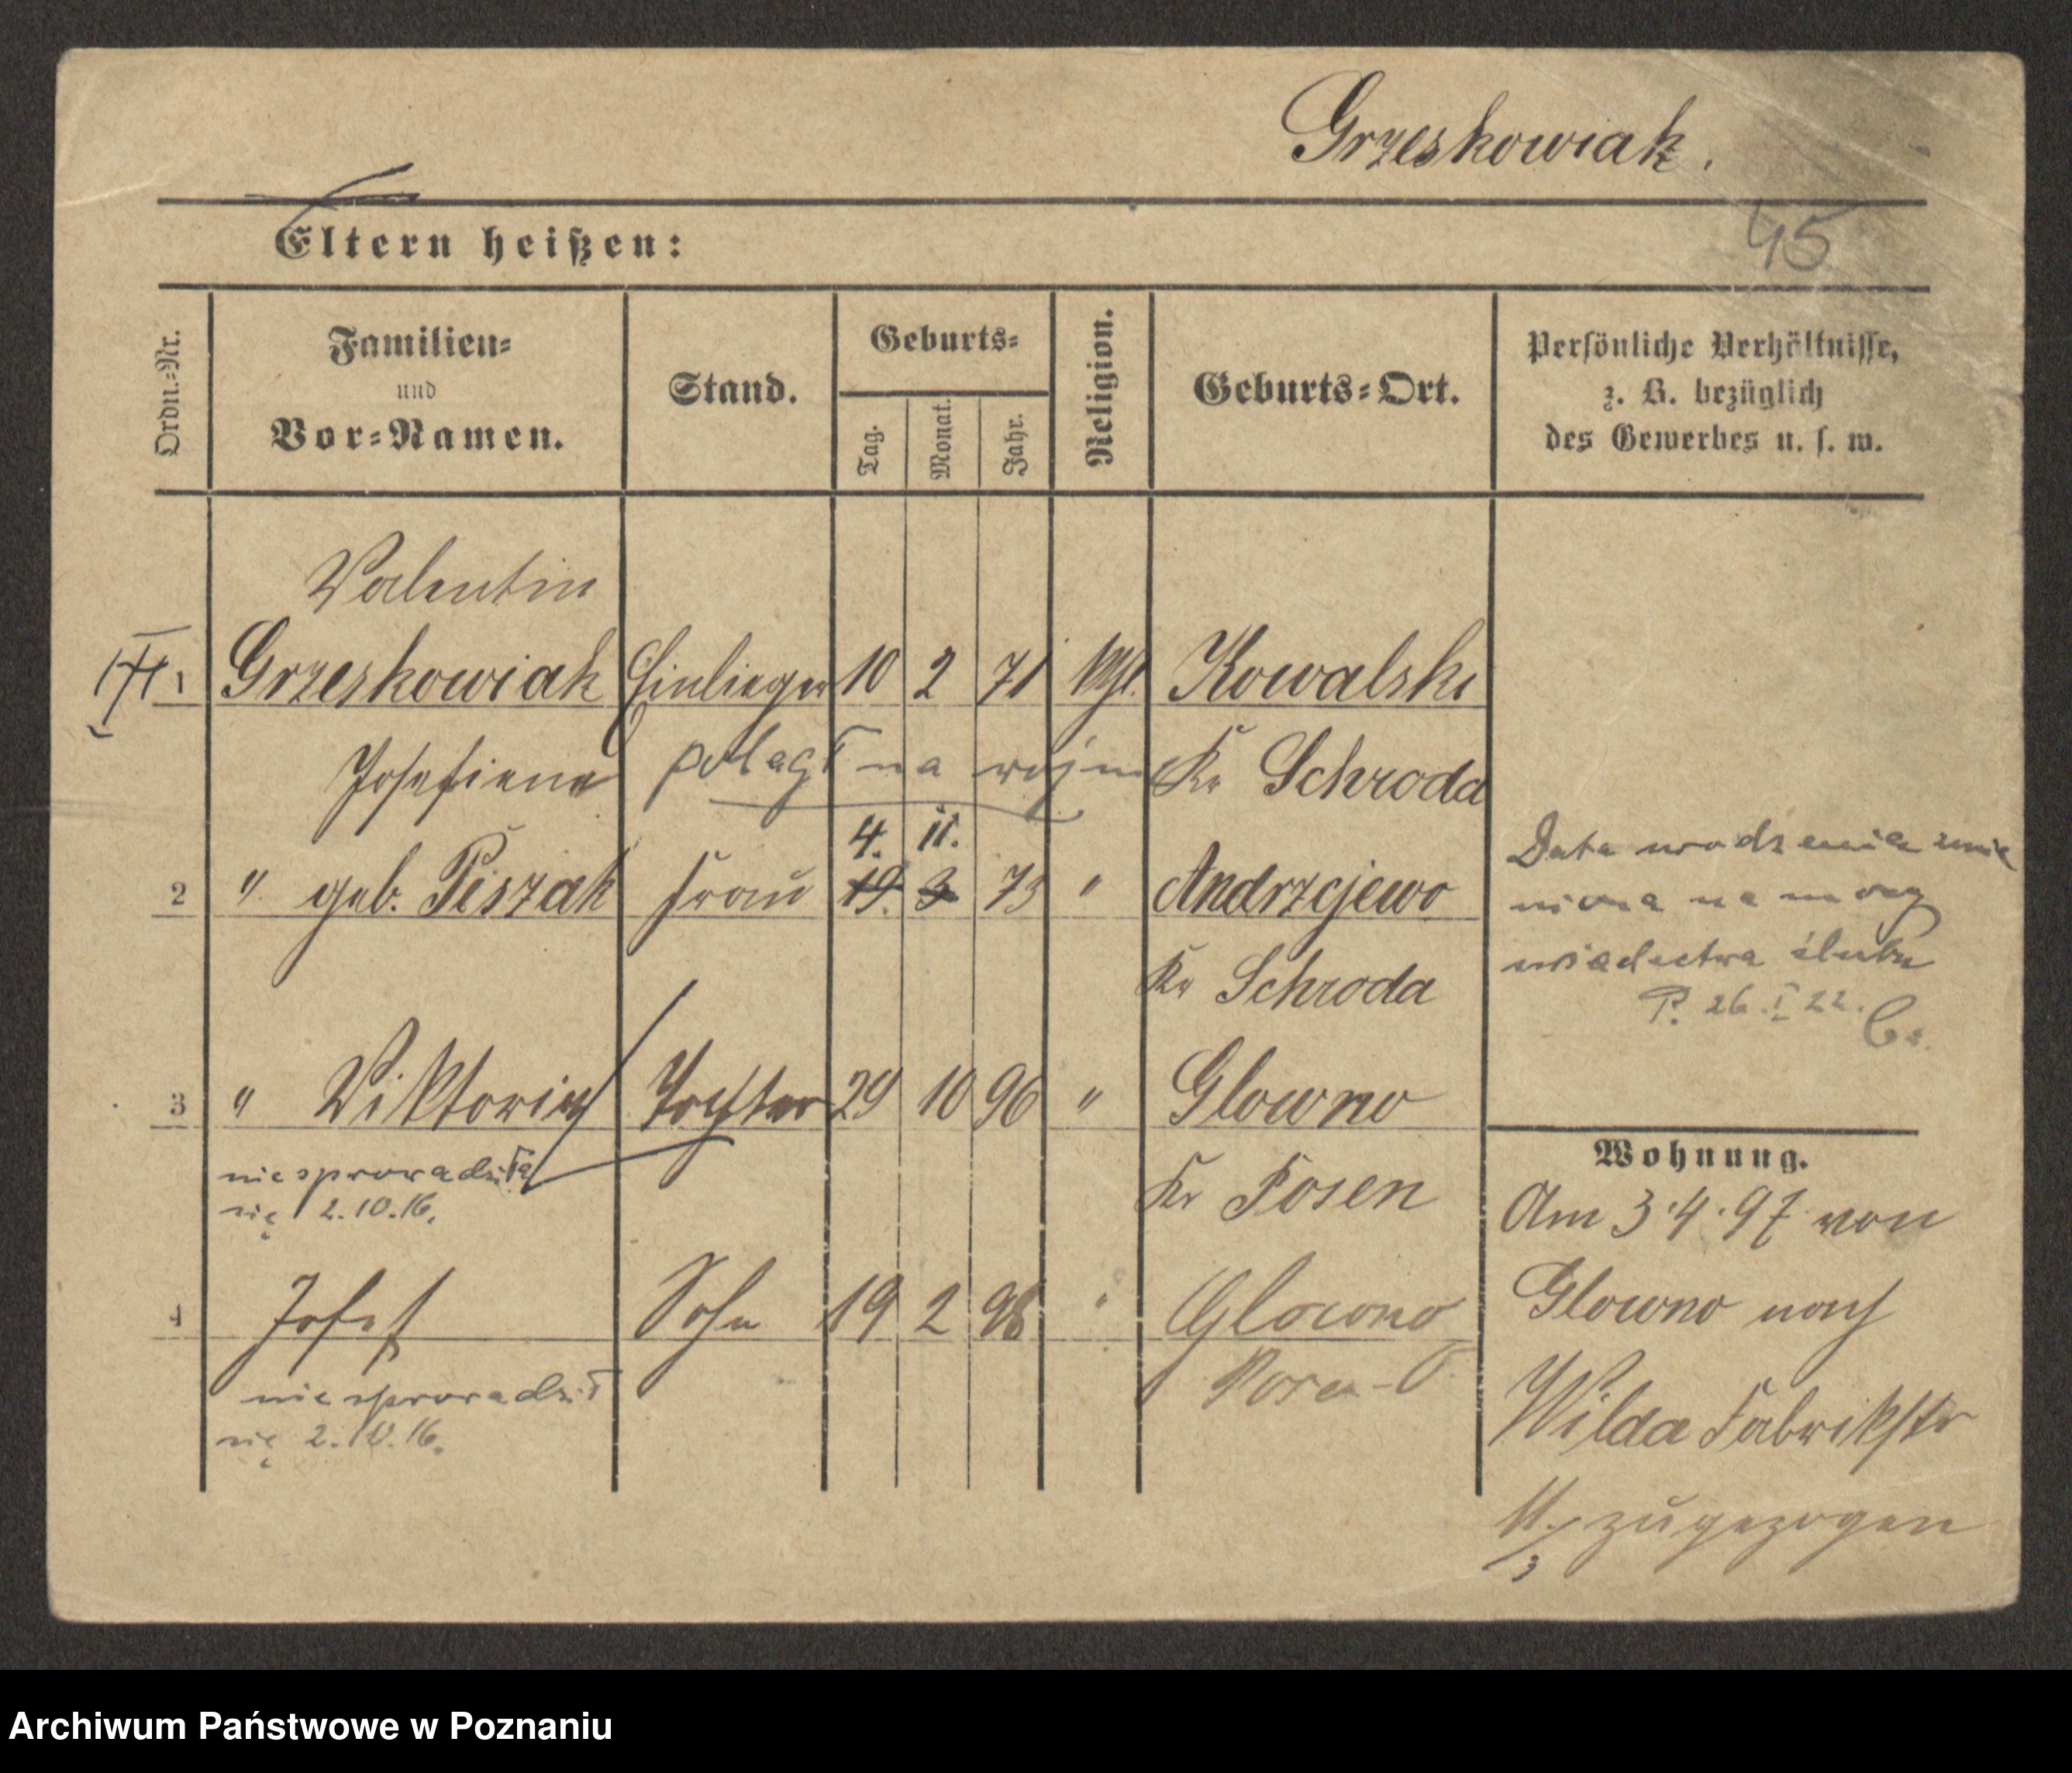 Grzeskowiak.
45
Eltern heißen:
Ordn.-Nr.
Familien-
und
Vor-Namen.
Stand.
Geburts-
Tag.
Monat.
Jahr.
Religion.
Geburts-Ort.
Persönliche Verhältnisse,
z. B. bezüglich
des Gewerbes u. s. w.
Valentin
1 Grzeskowiak Einlieger 10 2 71 kth. Kowalski
poległ na wojnie Kr Schroda
Josefiena
4. 11.
2 " geb. Piszak Frau 19. 3 73 " Andrzejewo
Kr Schroda
Data urodzenia zmie
niona na mocy
świadectwa ślubu
P. 26.I 22.
3 " Viktoria Tochter 29 10 96 " Glowno
Kr Posen
nie sprowadziła
się 2.10.16.
4 Josef Sohn 19 2 98 " Glowno
Posen-O
nie sprowadził
się 2.10.16.
Wohnung.
Am 3.4.97 von
Glowno nach
Wilda Fabrikstr
11/3 zugezogen
Archiwum Państwowe w Poznaniu